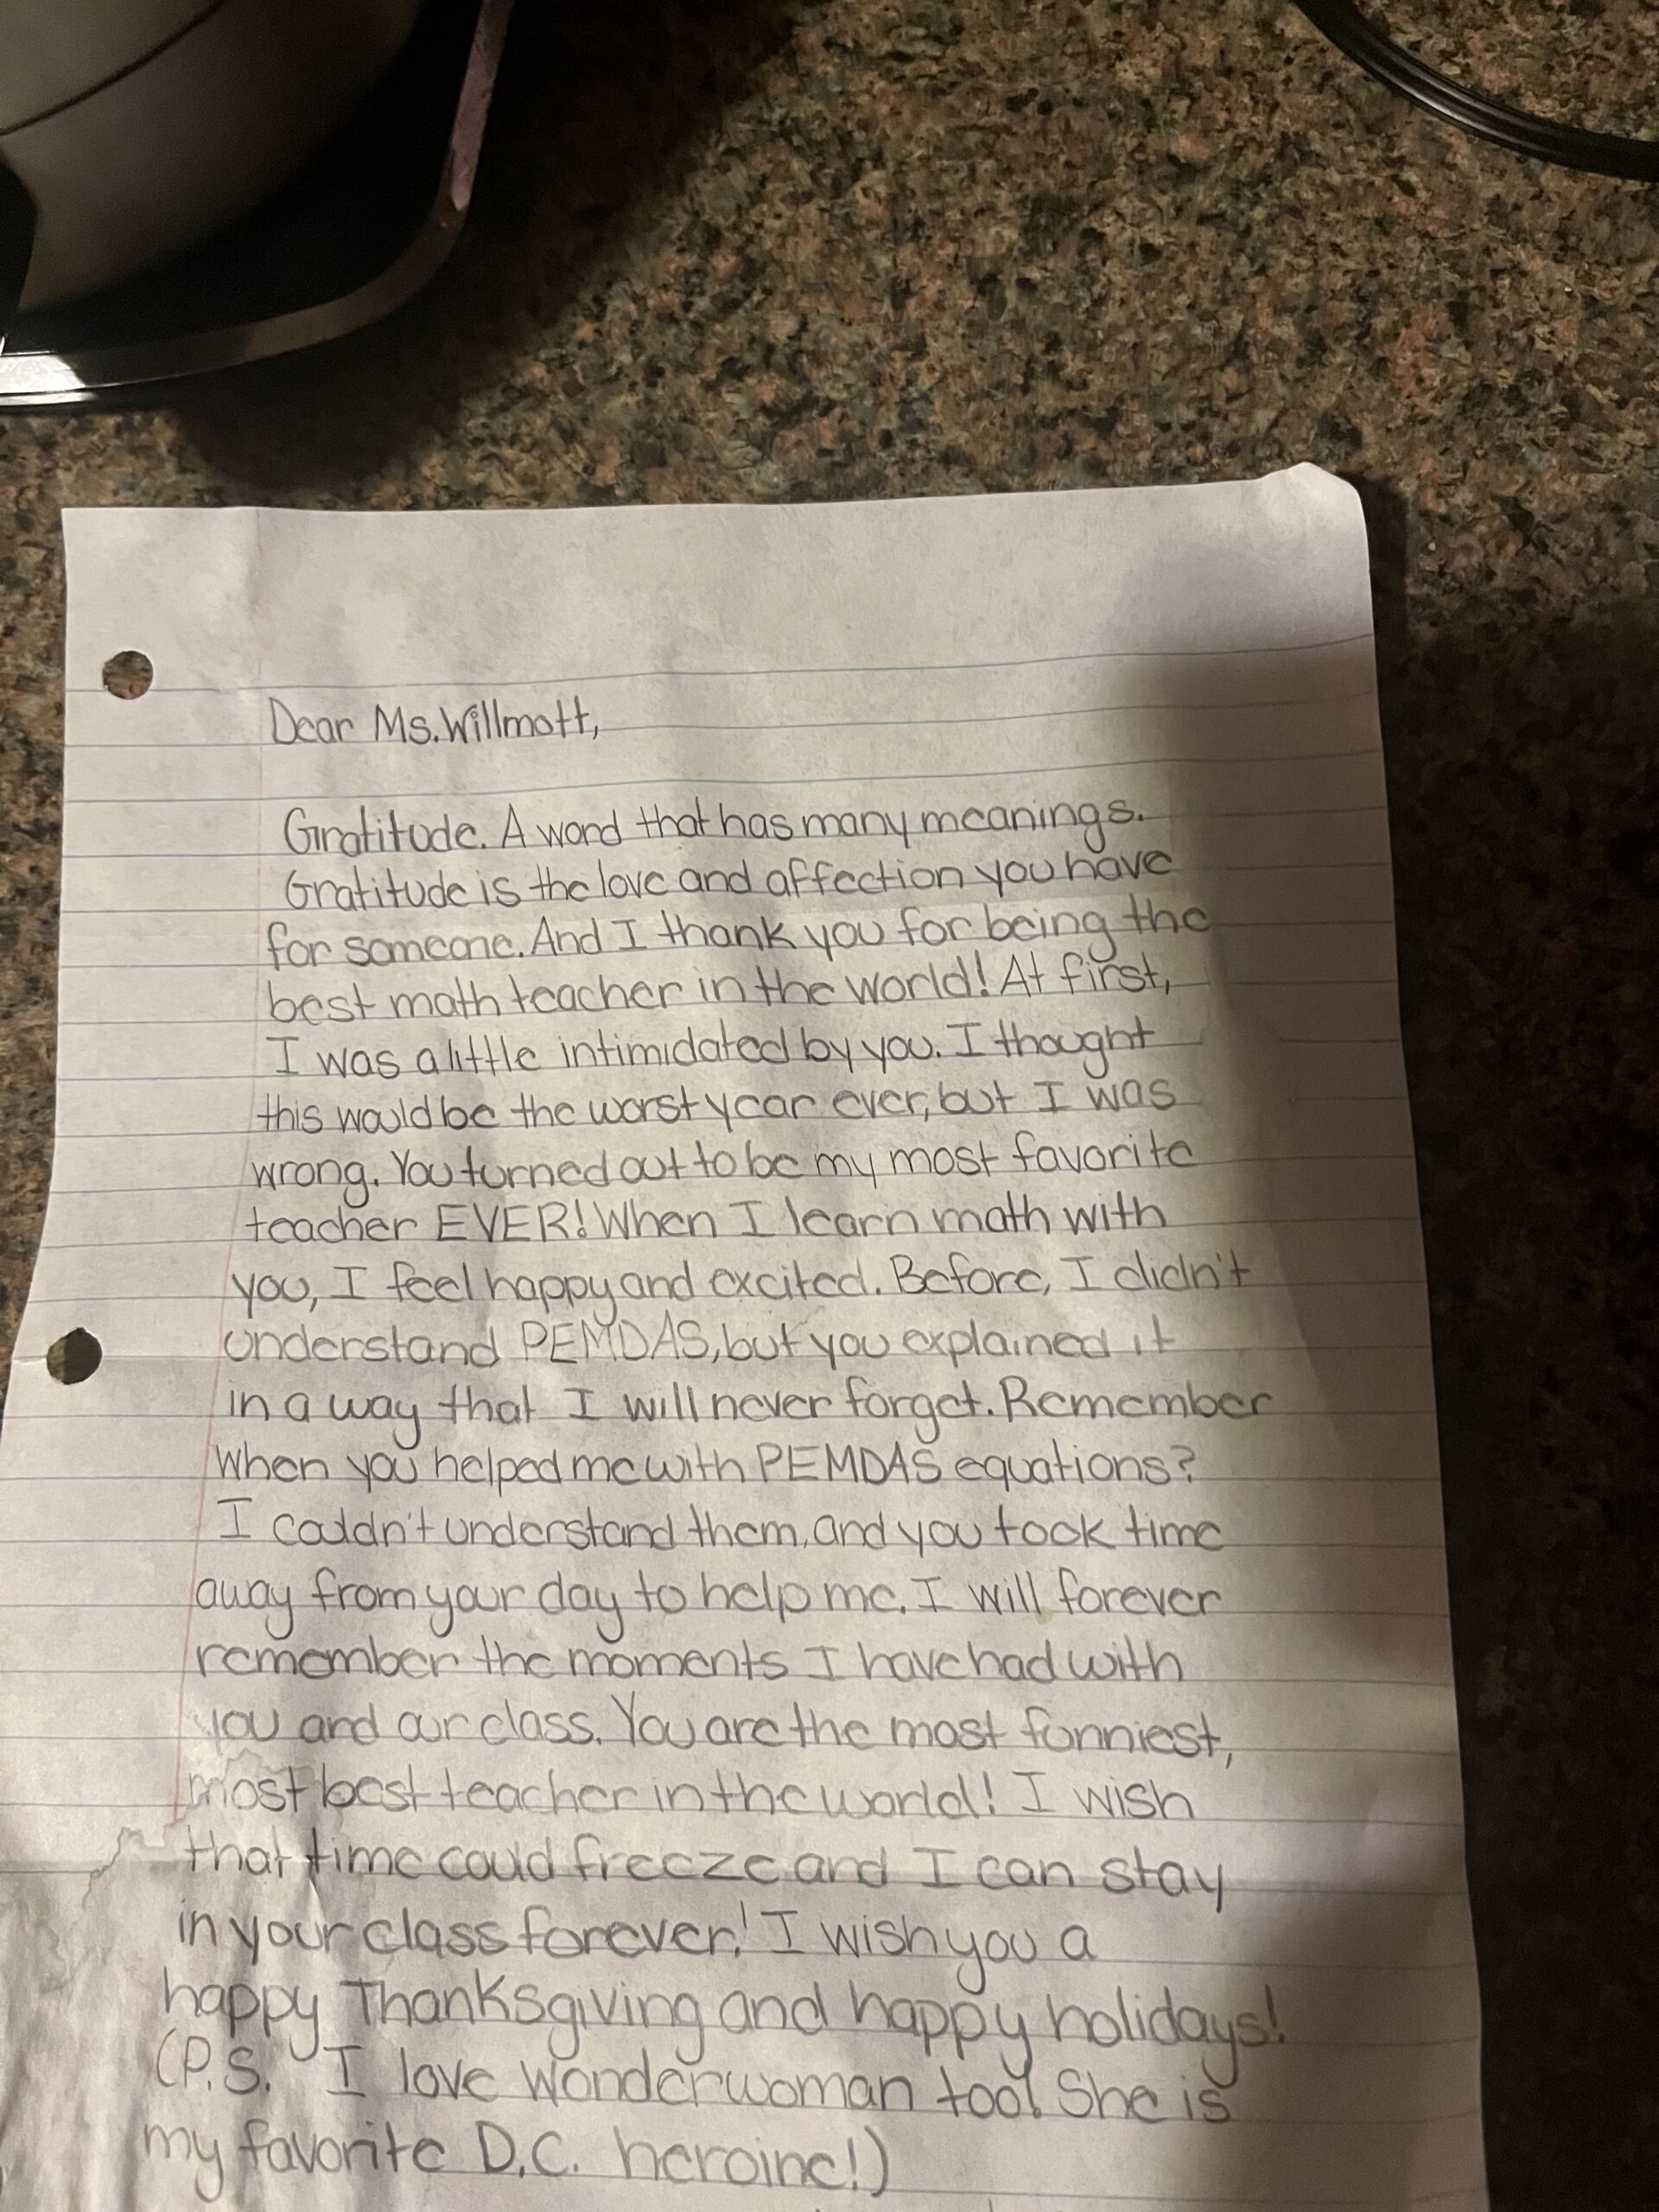 Dear Ms. Willmott,
Gratitude. A word that has many meanings.
Gratitude is the love and affection you have
for someone. And I thank you for being the
best math teacher in the world! At first,
I was a little intimidated by you. I thought
this would be the worst year ever, but I was
wrong. You turned out to be my most favorite
teacher EVER! When I learn math with
you, I feel happy and excited. Before, I didn't
understand PEMDAS, but you explained it
in a way that I will never forget. Remember
when you helped me with PEMDAS equations?
I couldn't understand them, and you took time
away from your day to help me. I will forever
remember the moments I have had with
you and our class. You are the most funniest,
most best teacher in the world! I wish
that time could freeze and I can stay
in your class forever! I wish you a
happy Thanksgiving and happy holidays!
(P.S. I love Wonderwoman too! She is
my favorite D.C. heroine!)